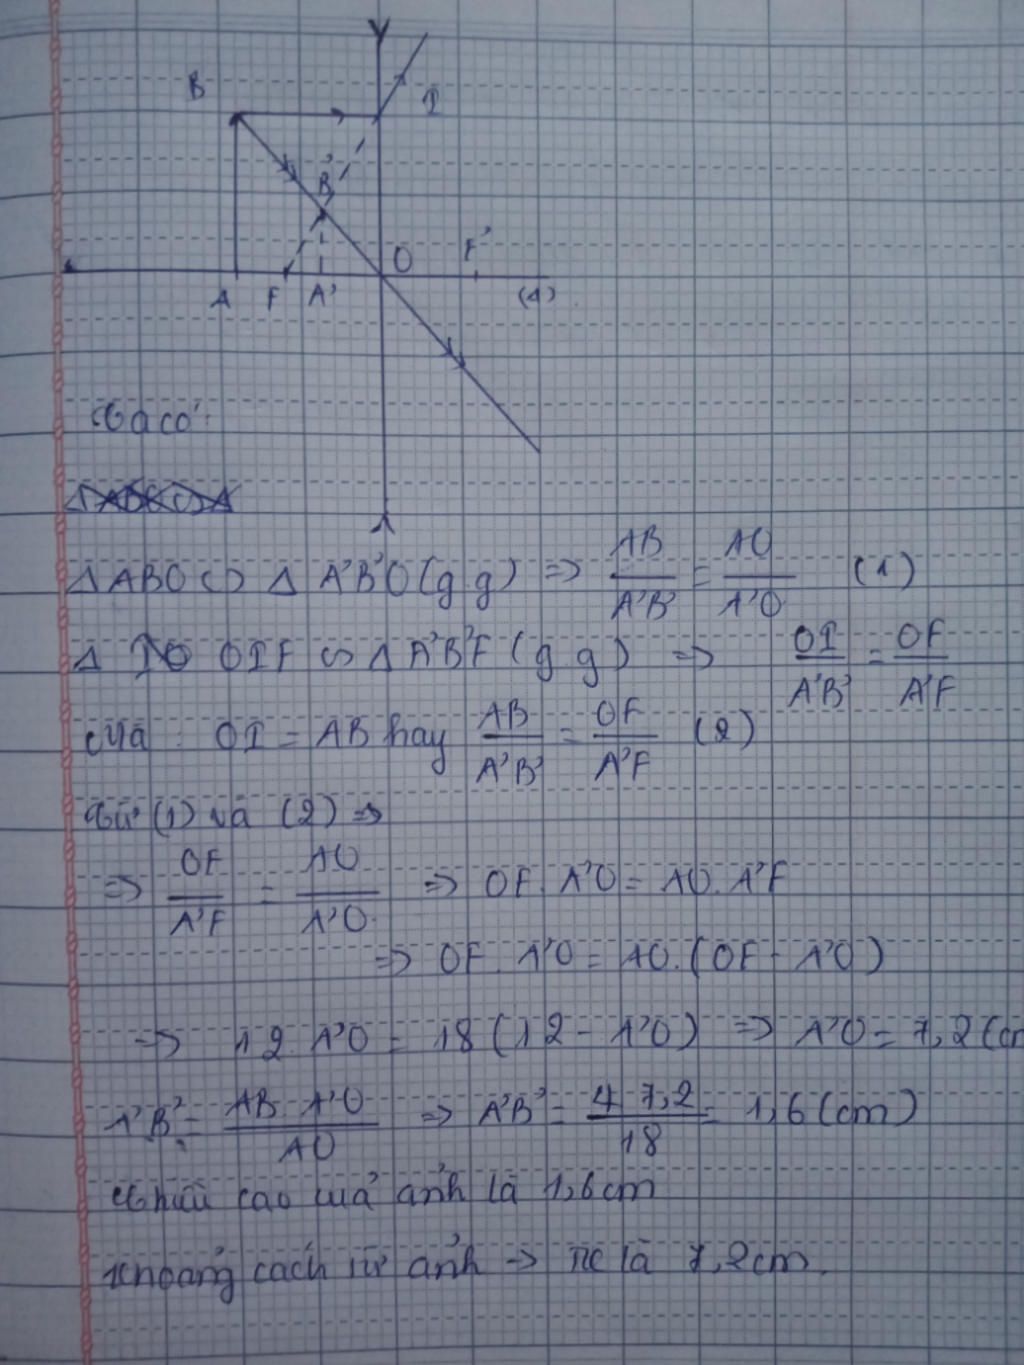 B
I
B'
O
F'
A
F
A'
(Δ)
Ta có:
Δ ABO ∽ Δ A'B'O (g.g) => AB/A'B' = AO/A'O (1)
Δ OIF ∽ Δ A'B'F (g.g) => OI/A'B' = OF/A'F
Mà: OI = AB hay AB/A'B' = OF/A'F (2)
Từ (1) và (2) =>
=> OF/A'F = AO/A'O => OF. A'O = AO. A'F
=> OF. A'O = AO.(OF - A'O)
=> 12. A'O = 18(12 - A'O) => A'O = 7,2(cm
A'B' = AB. A'O/AO => A'B' = 4.7,2/18 = 1,6(cm)
Chiều cao của ảnh là 1,6cm
Khoảng cách từ ảnh -> TK là 7,2cm.